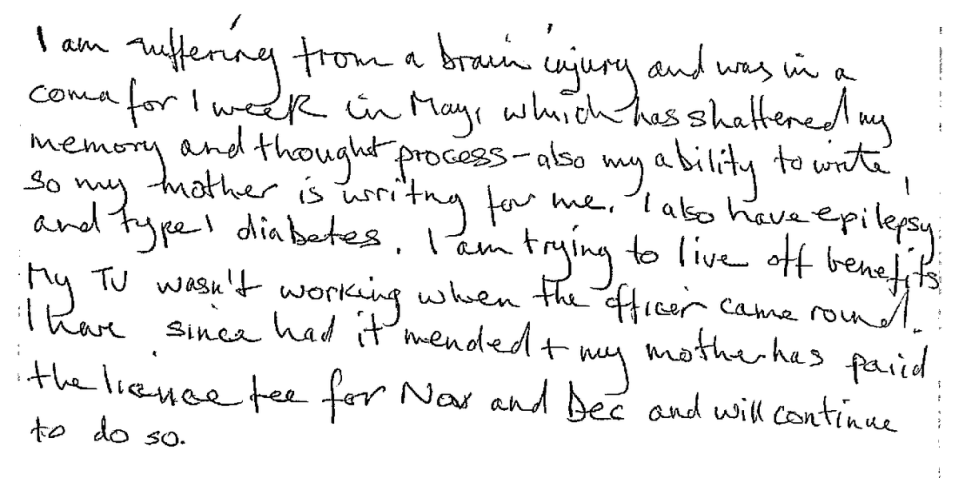 I am suffering from a brain injury and was in a
coma for 1 week in May, which has shattered my
memory and thought process - also my ability to write,
so my mother is wrritng for me. I also have epilepsy
and type 1 diabetes. I am trying to live off benefits
My TV wasn't working when the officer came round.
I have since had it mended + my mother has paiid
the license fee for Nov and Dec and will continue
to do so.